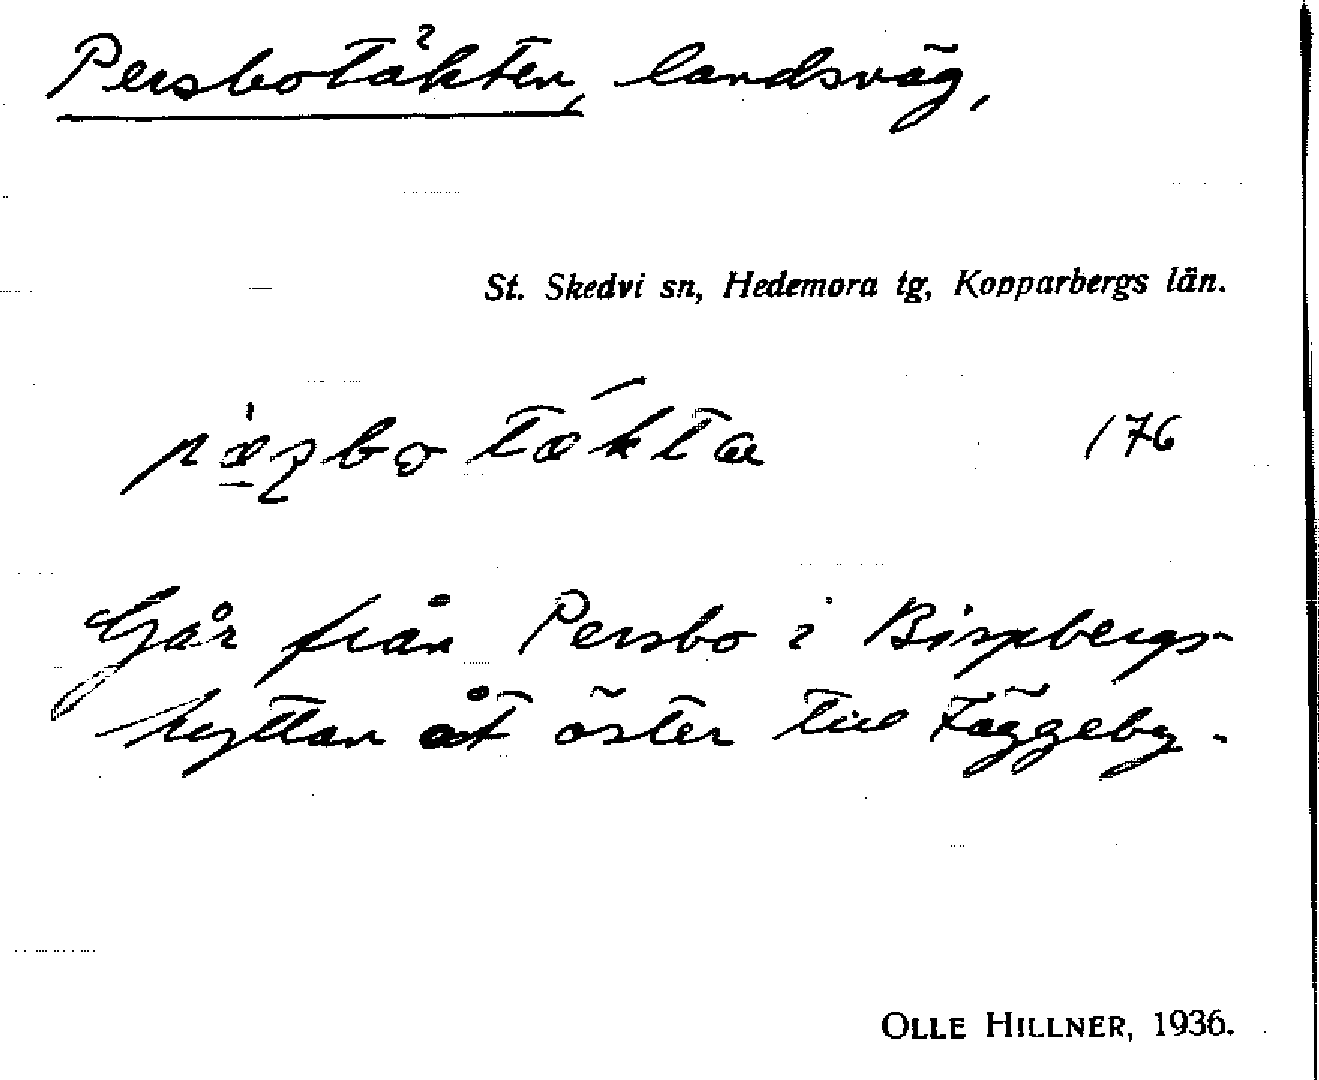 Persbotäkten, landsväg,
St. Skedvi sn, Hedemora tg, Kopparbergs län.
176
Går från Persbo i Bispbergs-
hyttan åt öster till Fäggeby.
OLLE HILLNER, 1936.